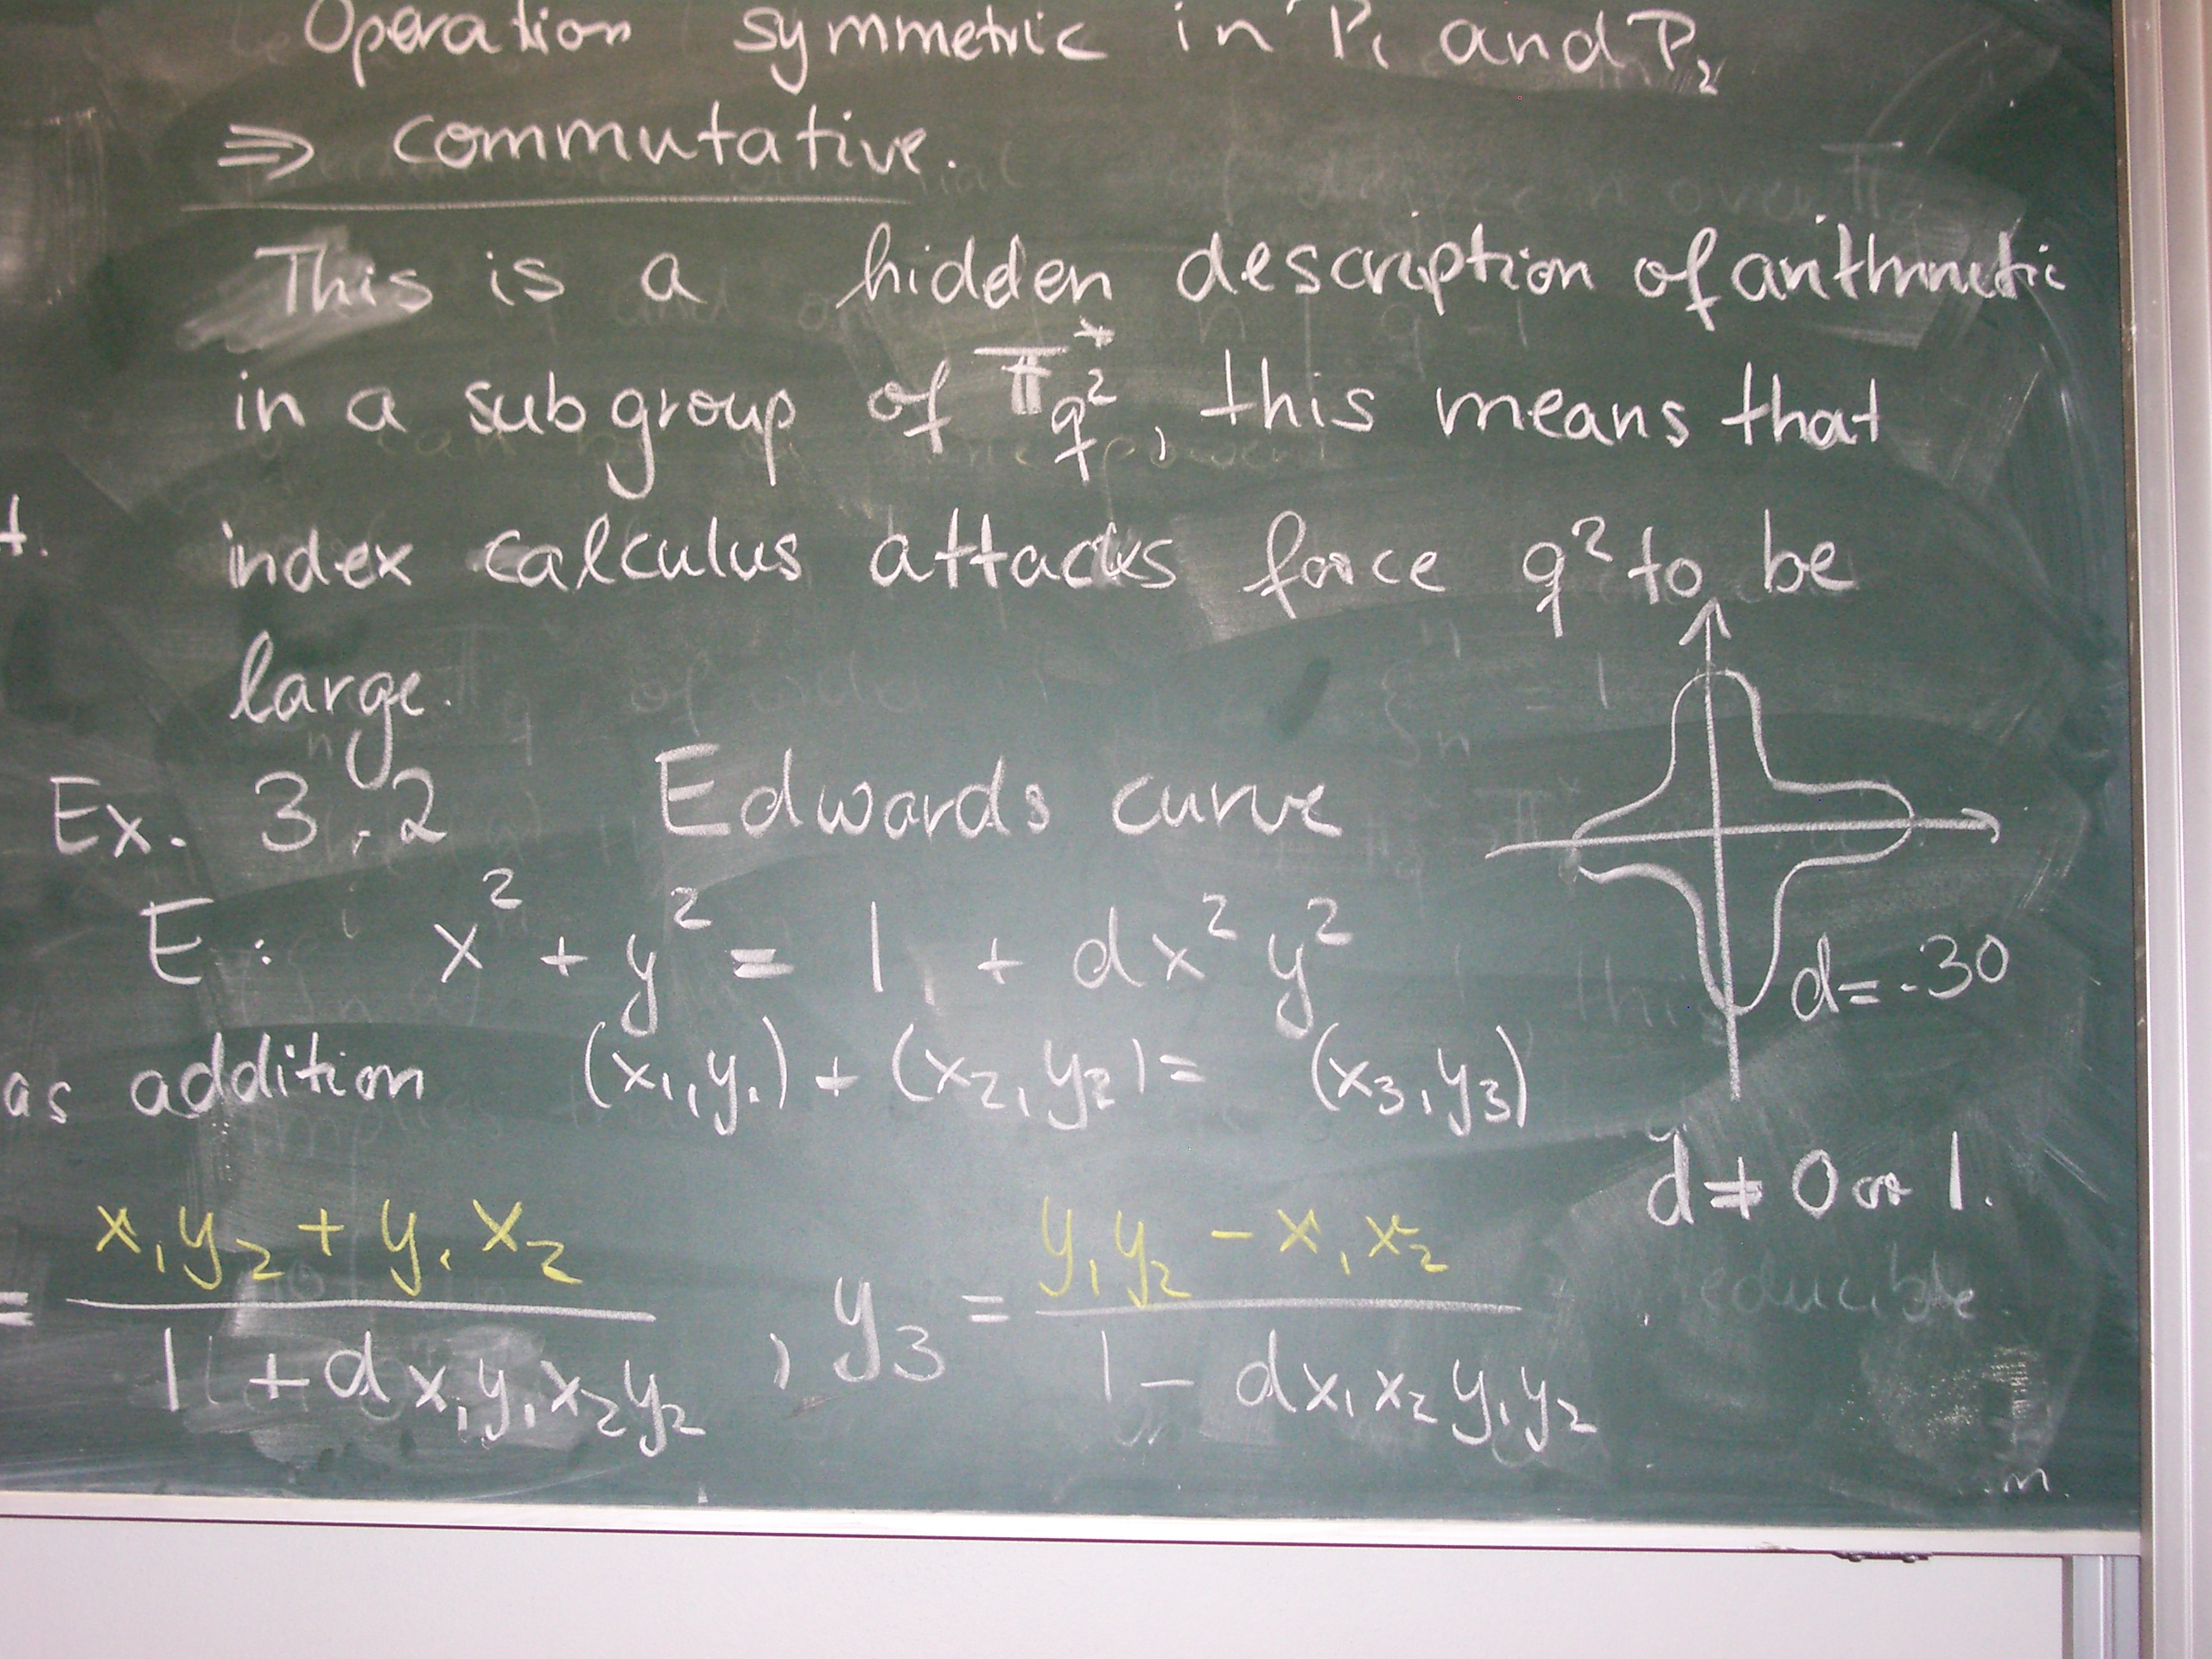 Operation symmetric in P₁ and P₂
⇒ commutative.
This is a hidden description of arithmetic
in a subgroup of 𝔽*_q², this means that
t.
index calculus attacks force q² to be
large.
Ex. 3.2 Edwards curve
E: x² + y² = 1 + dx²y²
d=-30
as addition (x₁,y₁) + (x₂,y₂) = (x₃,y₃)
d ≠ 0 or 1.
= (x₁y₂ + y₁x₂) / (1 + dx₁y₁x₂y₂) , y₃ = (y₁y₂ - x₁x₂) / (1 - dx₁x₂y₁y₂)
reducible